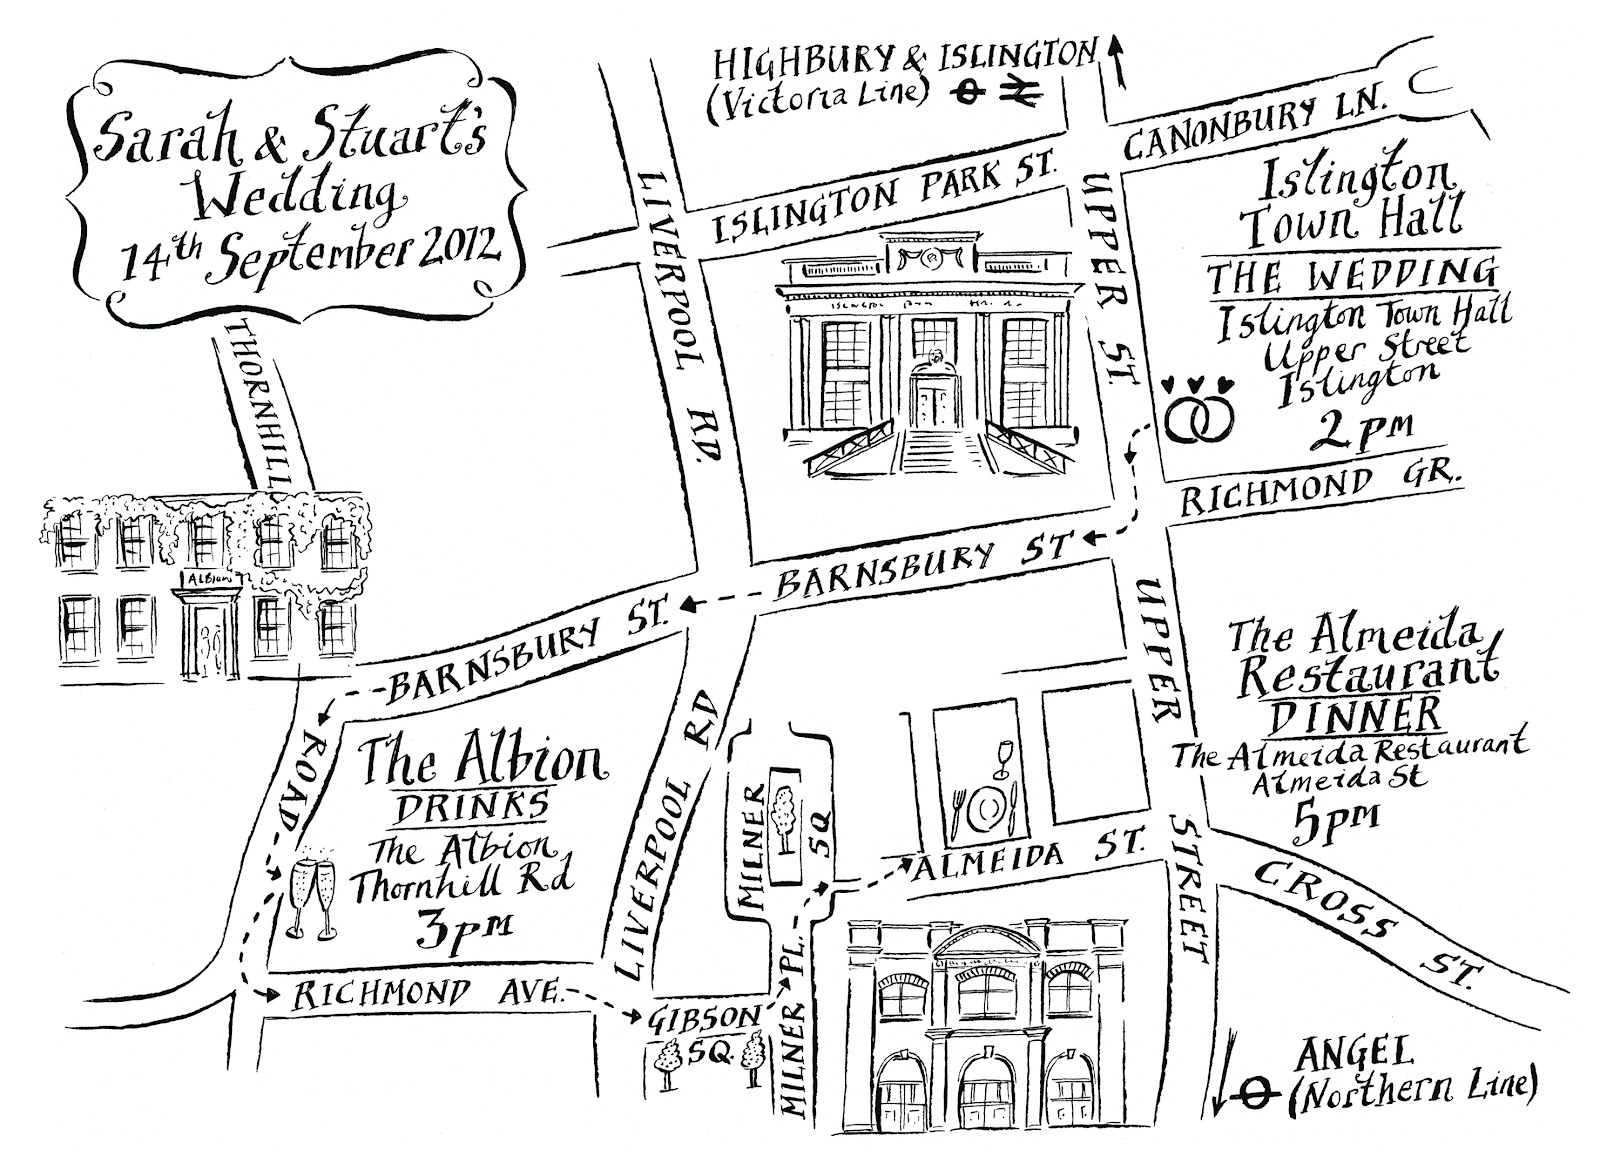 Sarah & Stuart's
Wedding
14th September 2012
HIGHBURY & ISLINGTON
(Victoria Line)
CANONBURY LN.
ISLINGTON PARK ST.
LIVERPOOL RD.
UPPER ST.
Islington
Town Hall
THE WEDDING
Islington Town Hall
Upper Street
Islington
2pm
RICHMOND GR.
THORNHILL
ALBION
BARNSBURY ST
BARNSBURY ST.
ROAD
The Albion
DRINKS
The Albion
Thornhill Rd
3pm
LIVERPOOL RD
UPPER
STREET
The Almeida
Restaurant
DINNER
The Almeida Restaurant
Almeida St
5pm
MILNER
SQ
ALMEIDA ST.
CROSS ST.
RICHMOND AVE.
GIBSON
SQ.
MILNER PL.
ANGEL
(Northern Line)